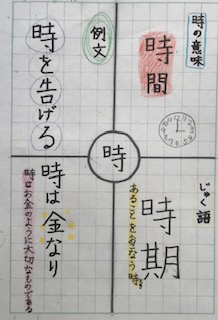 時の意味
時間
じゅく語
時期
あることをおこなう時。
時
例文
時を告げる
時は金なり
時はお金のように大切なものである